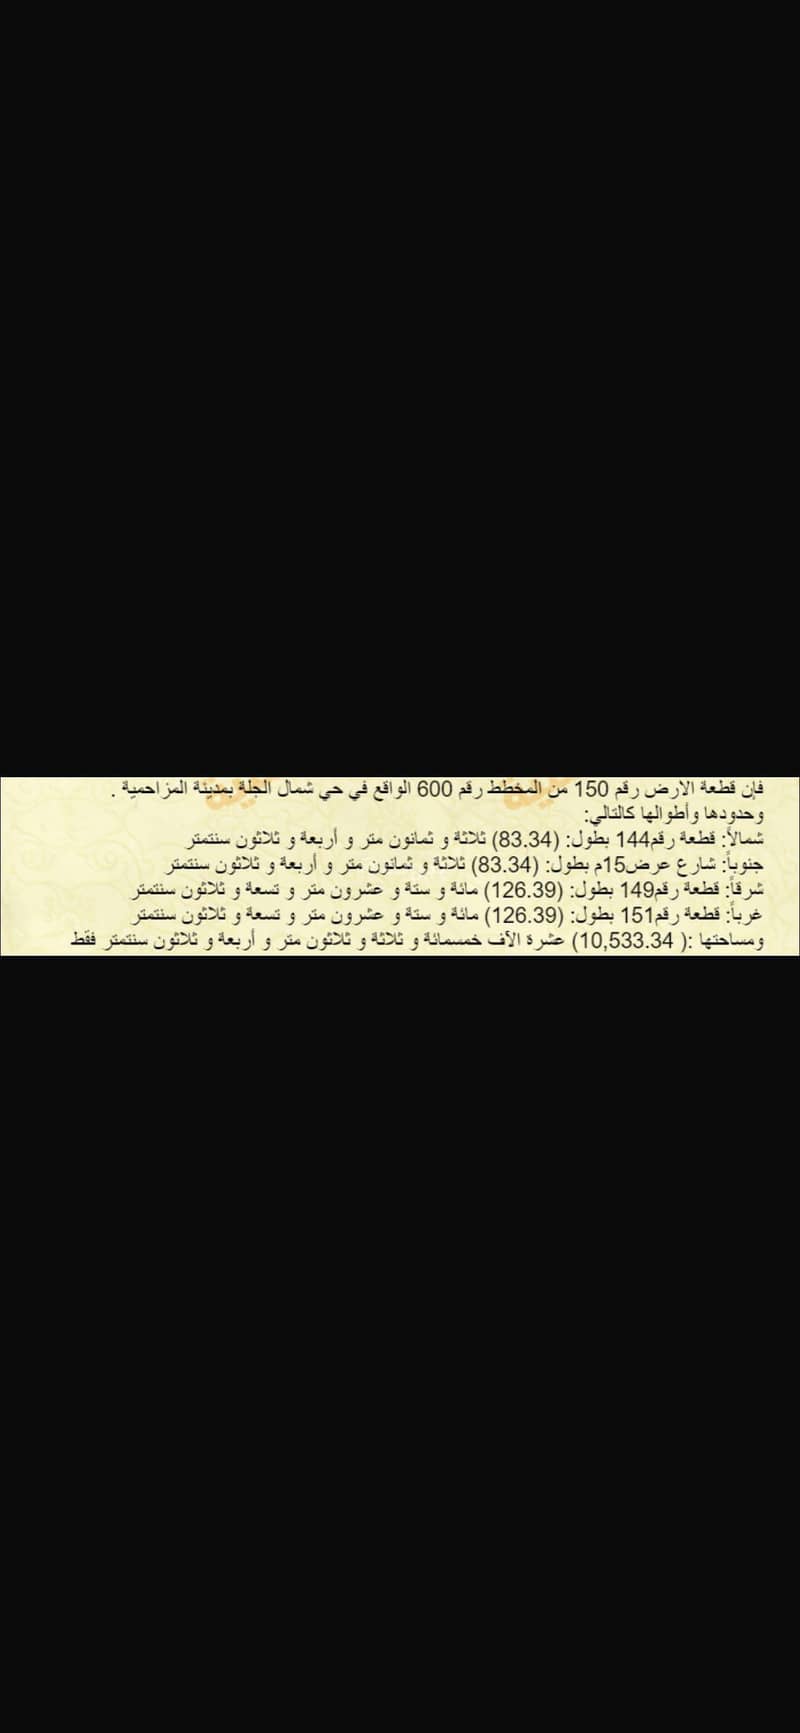 فإن قطعة الارض رقم 150 من المخطط رقم 600 الواقع في حي شمال الجلة بمدينة المزاحمية .
وحدودها وأطوالها كالتالي:
شمالاً: قطعة رقم144 بطول: (83.34) ثلاثة و ثمانون متر و أربعة و ثلاثون سنتمتر
جنوباً: شارع عرض15م بطول: (83.34) ثلاثة و ثمانون متر و أربعة و ثلاثون سنتمتر
شرقاً: قطعة رقم149 بطول: (126.39) مائة و ستة و عشرون متر و تسعة و ثلاثون سنتمتر
غرباً: قطعة رقم151 بطول: (126.39) مائة و ستة و عشرون متر و تسعة و ثلاثون سنتمتر
ومساحتها :( 10,533.34) عشرة الأف خمسمائة و ثلاثة و ثلاثون متر و أربعة و ثلاثون سنتمتر فقط